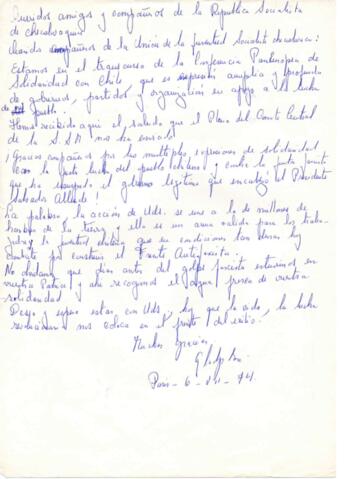 Queridos amigos y compañeros de la República Socialista
de Checoslovaquia
Queridos compañeros de la Unión de la juventud Socialista checoslovaca:
Estamos en el transcurso de la Conferencia Paneuropea de
Solidaridad con Chile que es expresión amplia y profunda
de gobiernos, partidos y organizaciones en apoyo a la lucha
de pueblo.
Hemos recibido aquí el saludo que el Pleno del Comité Central
de la nos ha enviado
¡Gracias compañeros por las múltiples expresiones de solidaridad
con la justa lucha del pueblo chileno y contra la junta fascista
que ha usurpado el gobierno legítimo que encabezó el Presidente
Salvador Allende!
La palabra, la acción de Uds. se une a la de millones de
hombres de la tierra y ella es un arma valiosa para los
y la juventud chilena que en condiciones tan duras hoy
combate por construir el Frente Antifascista.
No olvidamos que días antes del golpe fascista estuvimos en
vuestra Patria y allí recogimos el de vuestra
solidaridad
Deseo y espero estar con Uds. hoy que la vida, la lucha
revolucionaria nos coloca en el frente del exilio.
Muchas gracias
Gladys
Paris - 6 - 74.